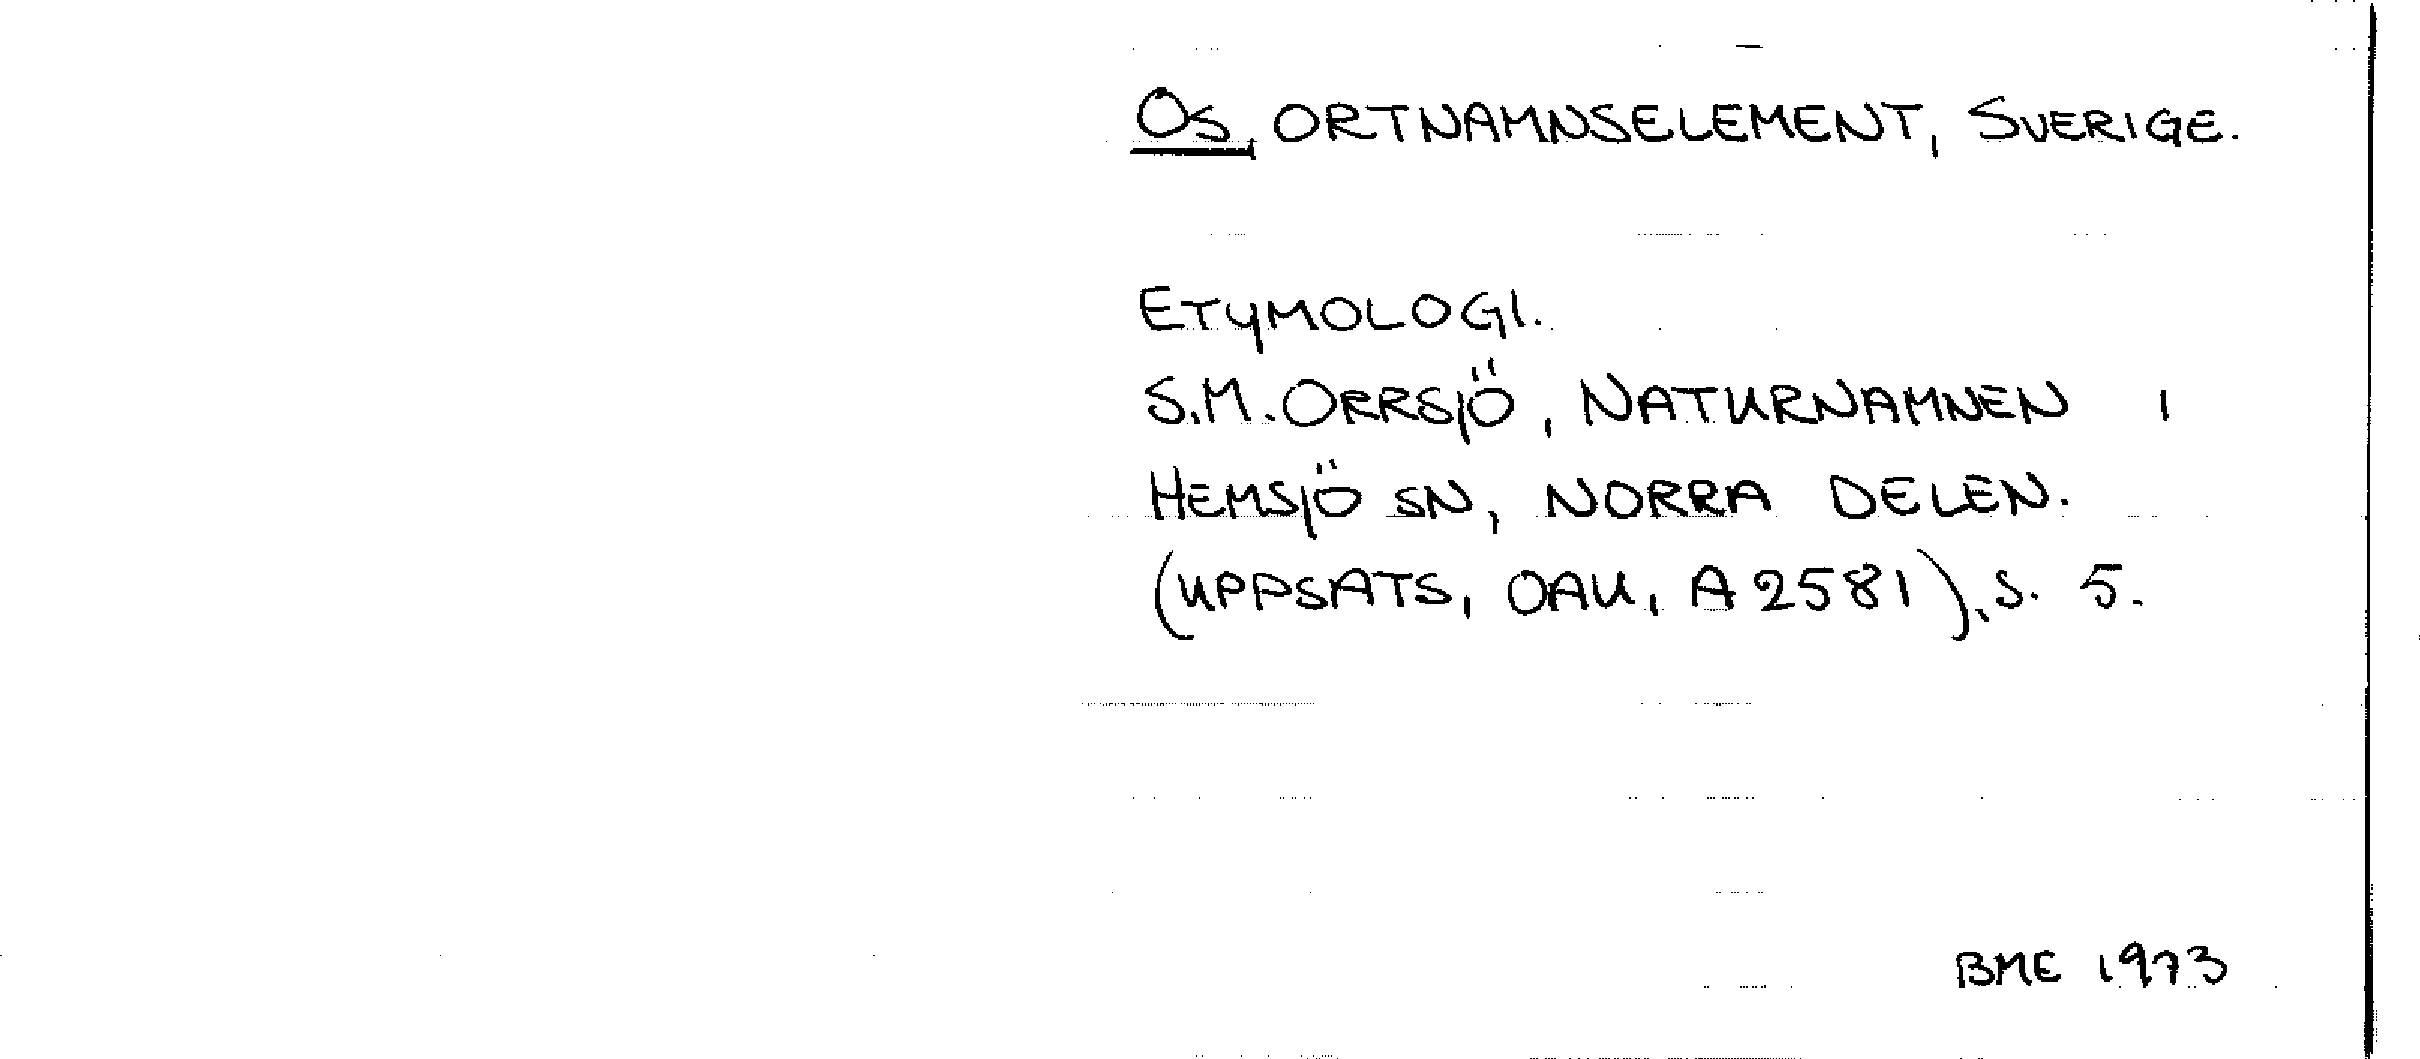 Os, ORTNAMNSELEMENT, SVERIGE.
ETYMOLOGI.
S.M. ORRSJÖ, NATURNAMNEN I
HEMSJÖ SN, NORRA DELEN.
(UPPSATS, OAU, A 2581), S. 5.
BME 1973